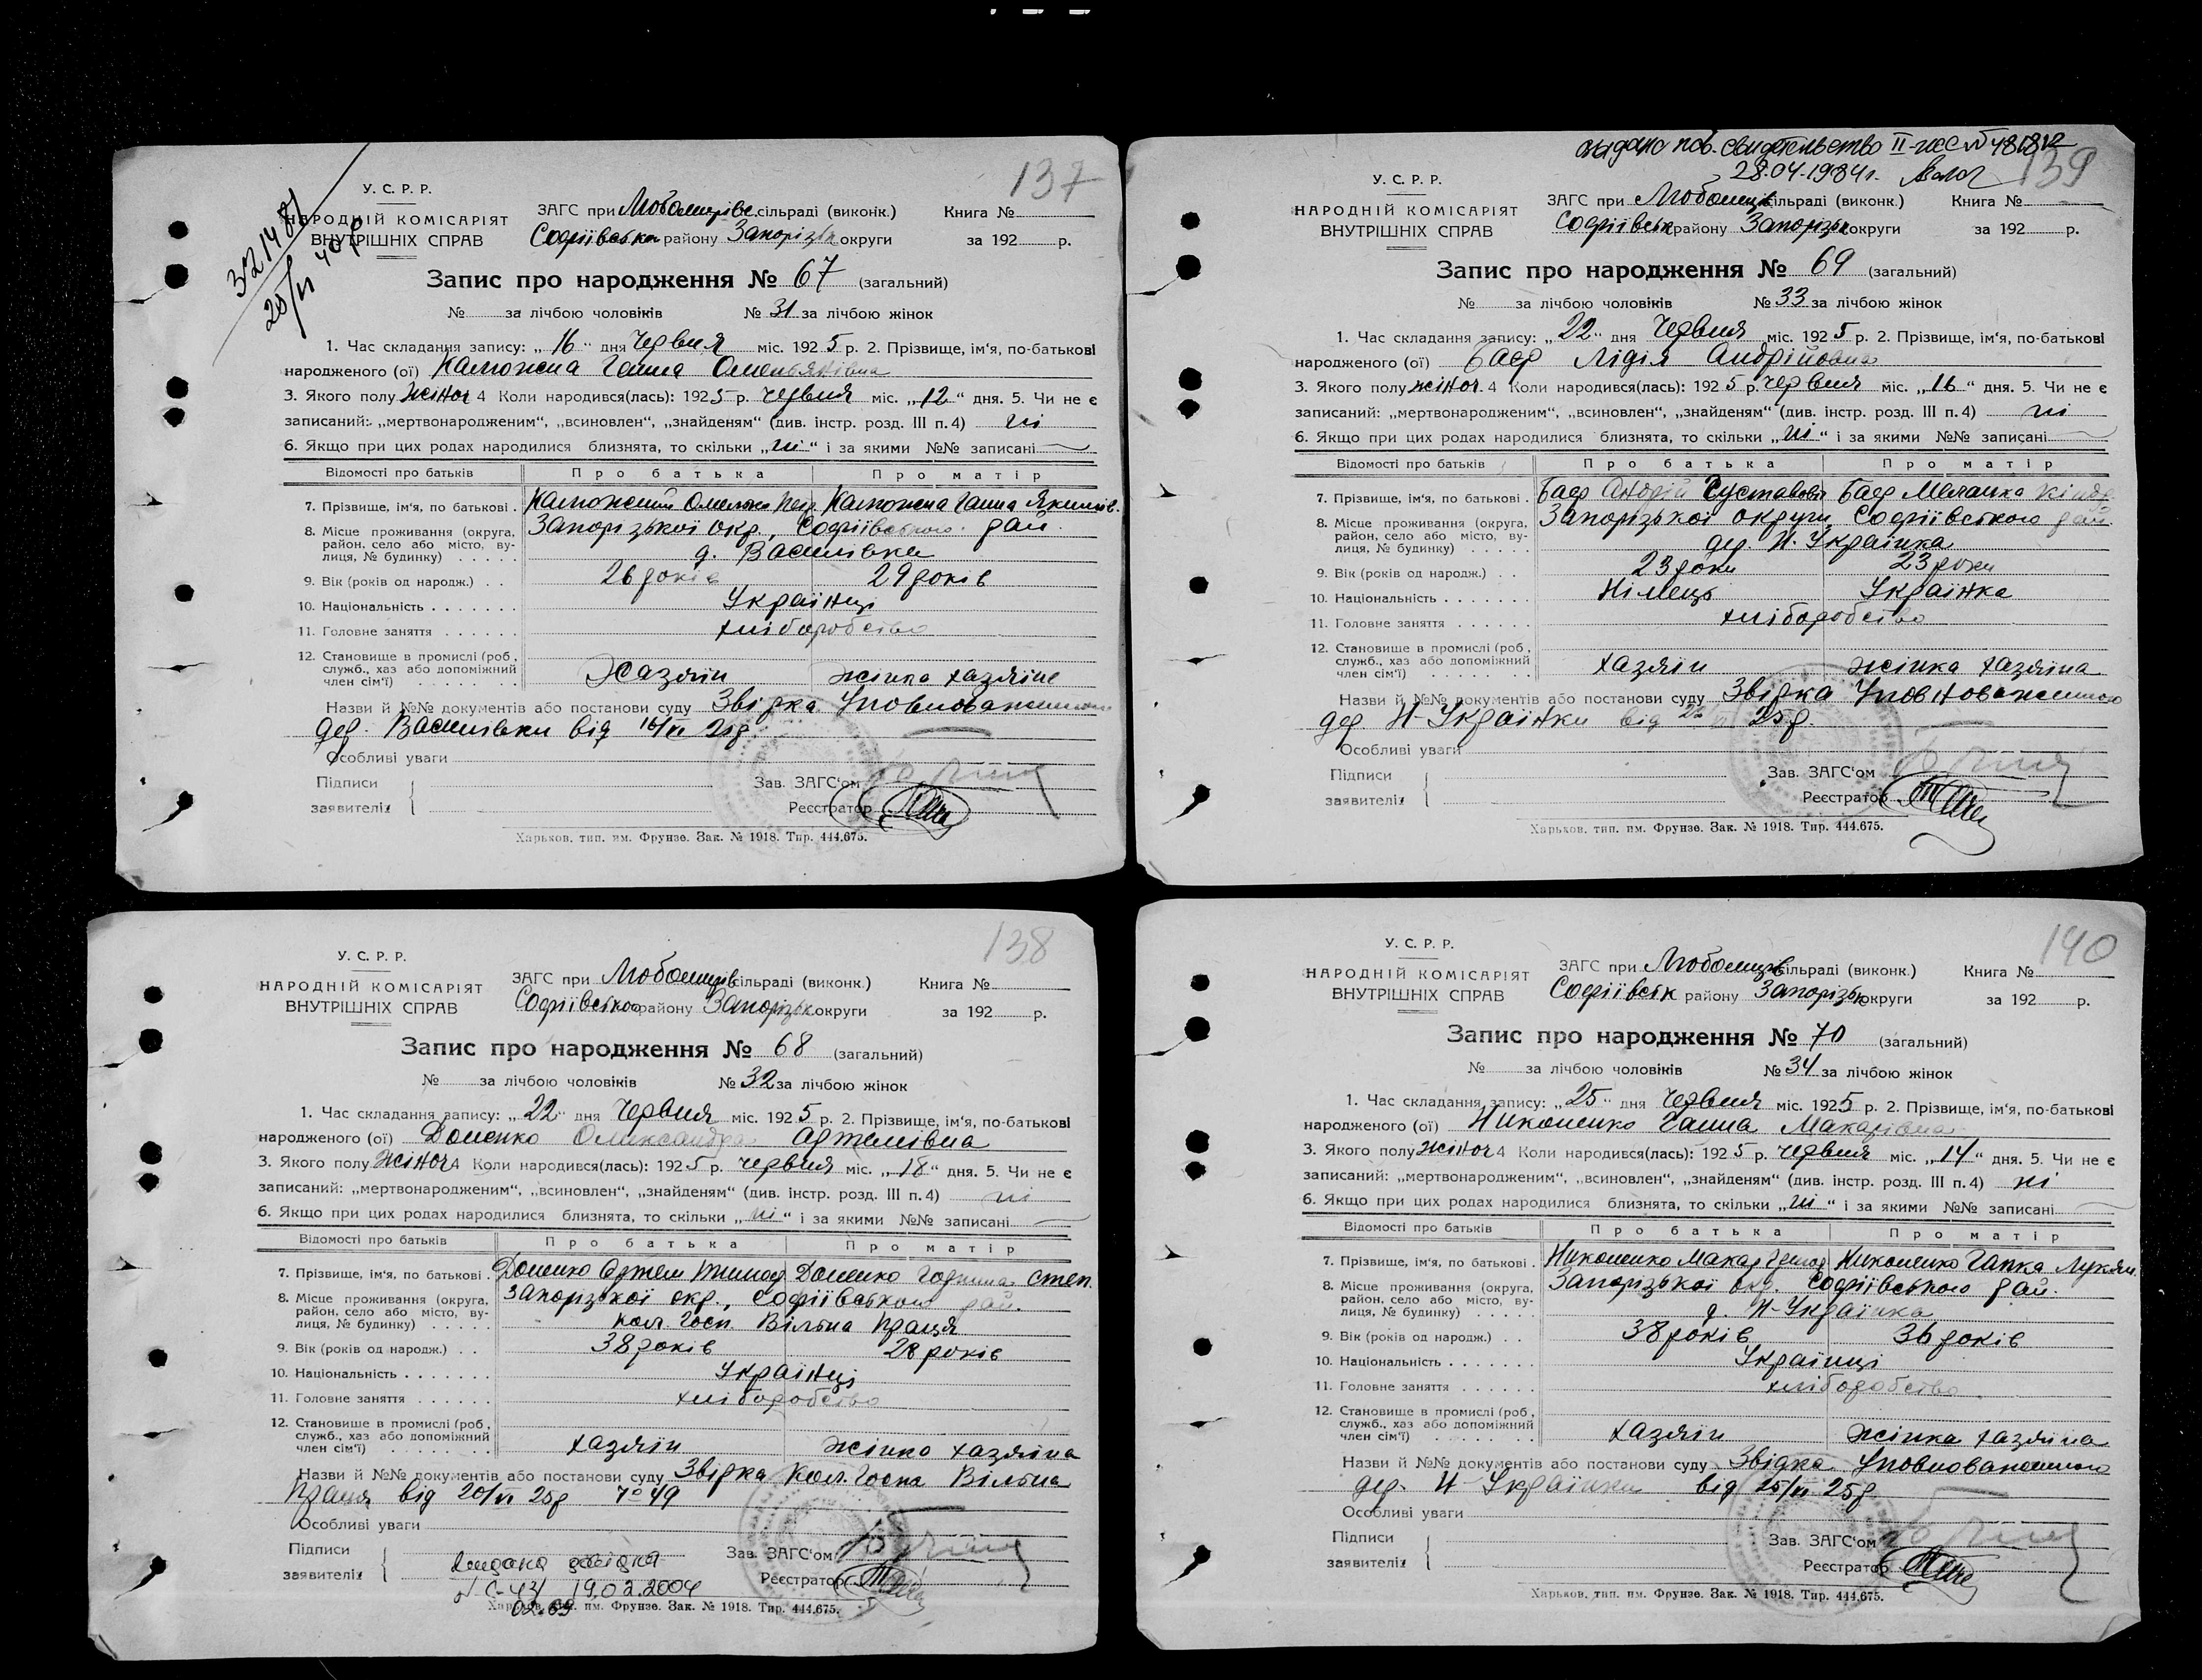 137
3214 87
20/VI 40 р
У. С. Р. Р.
НАРОДНІЙ КОМІСАРІЯТ
ВНУТРІШНІХ СПРАВ
ЗАГС при Любомирівс. сільраді (виконк.) Книга №
Софіївськ району Запорізьк округи за 192 р.
Запис про народження № 67 (загальний)
№ за лічбою чоловіків № 31 за лічбою жінок
1. Час складання запису: „16“ дня Червня міс. 1925 р. 2. Прізвище, ім‘я, по-батькові
народженого (ої) Калюжна Ганна Омельянівна
3. Якого полу жіноч 4 Коли народився(лась): 1925 р. червня міс. „12“ дня. 5. Чи не є
записаний: „мертвонародженим“, „всиновлен“, „знайденям“ (див. інстр. розд. III п. 4) ні
6. Якщо при цих родах народилися близнята, то скільки „ні“ і за якими №№ записані
Відомості про батьків Про батька Про матір
7. Прізвище, ім‘я, по батькові . Калюжний Омелько Петр. Калюжна Ганна Якимів.
8. Місце проживання (округа, район, село або місто, вулиця, № будинку) Запорізької окр., Софіївського рай.
д. Василівка
9. Вік (років од народж.) . . 26 років 29 років
10. Національність . . . . . . . Українці
11. Головне заняття . . . . . . хліборобство
12. Становище в промислі (роб., служб., хаз або допоміжний член сім‘ї) Хазяїн жінка хазяїна
Назви й №№ документів або постанови суду Звірка Уповноваженного
дер. Василівки від 16/VI 25р.
Особливі уваги
Підписи Зав. ЗАГС‘ом
заявителів Реєстратор
Харьков. тип. им. Фрунзе. Зак. № 1918. Тир. 444.675.
видано пов. свидетельство II-ЖС № 481812
28.04.1984г.
139
У. С. Р. Р.
НАРОДНІЙ КОМІСАРІЯТ
ВНУТРІШНІХ СПРАВ
ЗАГС при Любомирів сільраді (виконк.) Книга №
Софіївськ району Запорізьк округи за 192 р.
Запис про народження № 69 (загальний)
№ за лічбою чоловіків № 33 за лічбою жінок
1. Час складання запису: „22“ дня Червня міс. 1925 р. 2. Прізвище, ім‘я, по-батькові
народженого (ої) Баєр Лідія Андрійовна
3. Якого полу жіноч. 4 Коли народився(лась): 1925 р. червня міс. „16“ дня. 5. Чи не є
записаний: „мертвонародженим“, „всиновлен“, „знайденям“ (див. інстр. розд. III п. 4) ні
6. Якщо при цих родах народилися близнята, то скільки „ні“ і за якими №№ записані
Відомості про батьків Про батька Про матір
7. Прізвище, ім‘я, по батькові . Баєр Андрій Густавови Баєр Меланка Кіндр
8. Місце проживання (округа, район, село або місто, вулиця, № будинку) Запорізької округи, Софіївського рай.
дер. Н. Українка
9. Вік (років од народж.) . . 23 роки 23 роки
10. Національність . . . . . . . Німець Українка
11. Головне заняття . . . . . . хліборобство
12. Становище в промислі (роб., служб., хаз або допоміжний член сім‘ї) хазяїн жінка хазяїна
Назви й №№ документів або постанови суду Звірка Уповноваженного
дер. Н-Українки від 22/VI 25р.
Особливі уваги
Підписи Зав. ЗАГС‘ом
заявителів Реєстратор
Харьков. тип. им. Фрунзе. Зак. № 1918. Тир. 444.675.
138
У. С. Р. Р.
НАРОДНІЙ КОМІСАРІЯТ
ВНУТРІШНІХ СПРАВ
ЗАГС при Любомирів сільраді (виконк.) Книга №
Софіївського району Запорізьк округи за 192 р.
Запис про народження № 68 (загальний)
№ за лічбою чоловіків № 32 за лічбою жінок
1. Час складання запису: „22“ дня Червня міс. 1925 р. 2. Прізвище, ім‘я, по-батькові
народженого (ої) Доценко Олександра Артемівна
3. Якого полу жіноч 4 Коли народився(лась): 1925 р. червня міс. „18“ дня. 5. Чи не є
записаний: „мертвонародженим“, „всиновлен“, „знайденям“ (див. інстр. розд. III п. 4) ні
6. Якщо при цих родах народилися близнята, то скільки „ні“ і за якими №№ записані
Відомості про батьків Про батька Про матір
7. Прізвище, ім‘я, по батькові . Доценко Артем Тимоф Доценко Горпина Степ.
8. Місце проживання (округа, район, село або місто, вулиця, № будинку) Запорізької окр., Софіївського рай.
Кол. Госп. Вільна Праця
9. Вік (років од народж.) . . 38 років 28 років
10. Національність . . . . . . . Українці
11. Головне заняття . . . . . . хліборобство
12. Становище в промислі (роб., служб., хаз або допоміжний член сім‘ї) хазяїн жінка хазяїна
Назви й №№ документів або постанови суду Звірка Кол. Госпа Вільна
Праця від 20/VI 25р № 49
Особливі уваги
Підписи Зав. ЗАГС‘ом
Видана довідка
заявителів Реєстратор
№ С-43/ 19.02.2004
02.69
Харьков. тип. им. Фрунзе. Зак. № 1918. Тир. 444.675.
140
У. С. Р. Р.
НАРОДНІЙ КОМІСАРІЯТ
ВНУТРІШНІХ СПРАВ
ЗАГС при Любомирів сільраді (виконк.) Книга №
Софіївськ району Запорізьк округи за 192 р.
Запис про народження № 70 (загальний)
№ за лічбою чоловіків № 34 за лічбою жінок
1. Час складання запису: „25“ дня Червня міс. 1925 р. 2. Прізвище, ім‘я, по-батькові
народженого (ої) Никоненко Ганна Макарівна
3. Якого полу жіноч 4 Коли народився(лась): 1925 р. червня міс. „14“ дня. 5. Чи не є
записаний: „мертвонародженим“, „всиновлен“, „знайденям“ (див. інстр. розд. III п. 4) ні
6. Якщо при цих родах народилися близнята, то скільки „ні“ і за якими №№ записані
Відомості про батьків Про батька Про матір
7. Прізвище, ім‘я, по батькові . Никоненко Макар Никоненко Гапка Лукян.
8. Місце проживання (округа, район, село або місто, вулиця, № будинку) Запорізької окр. Софіївського рай.
д. Н-Українка
9. Вік (років од народж.) . . 38 років 36 років
10. Національність . . . . . . . Українці
11. Головне заняття . . . . . . хліборобство
12. Становище в промислі (роб., служб., хаз або допоміжний член сім‘ї) хазяїн жінка хазяїна
Назви й №№ документів або постанови суду Звірка Уповноваженного
дер. Н-Українки від 25/VI 25р.
Особливі уваги
Підписи Зав. ЗАГС‘ом
заявителів Реєстратор
Харьков. тип. им. Фрунзе. Зак. № 1918. Тир. 444.675.